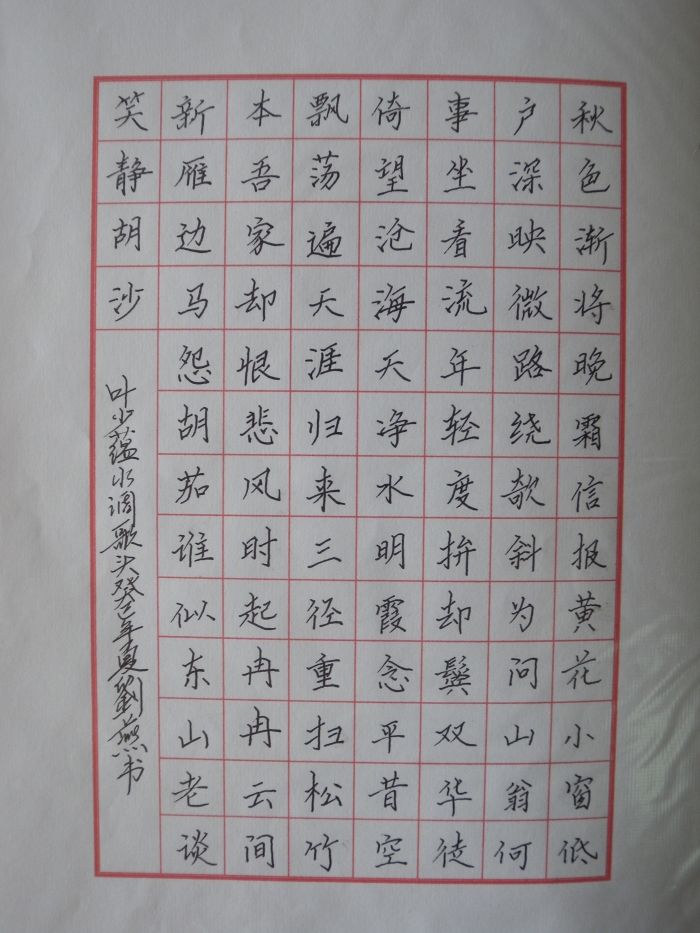 秋色渐将晚霜信报黄花小窗低
户深映微路绕欹斜为问山翁何
事坐看流年轻度拚却鬓双华徒
倚望沧海天净水明霞念平昔空
飘荡遍天涯归来三径重扫松竹
本吾家却恨悲风时起冉冉云间
新雁边马怨胡笳谁似东山老谈
笑静胡沙
叶少蕴水调歌头癸巳年夏劉燕书